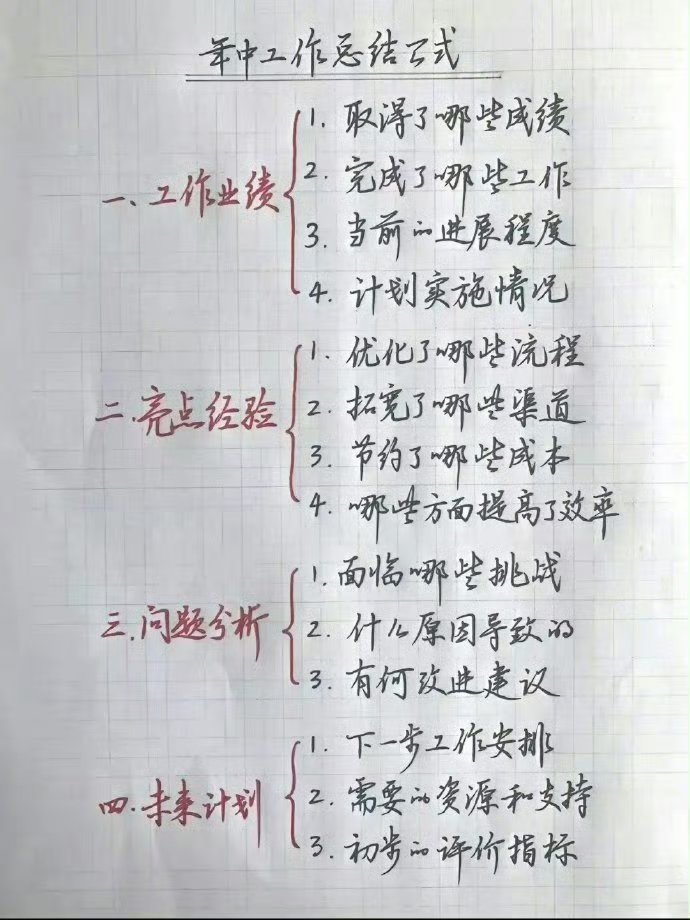 年中工作总结公式
一、工作业绩
1. 取得了哪些成绩
2. 完成了哪些工作
3. 当前的进展程度
4. 计划实施情况
二.亮点经验
1. 优化了哪些流程
2. 拓宽了哪些渠道
3. 节约了哪些成本
4. 哪些方面提高了效率
三.问题分析
1. 面临哪些挑战
2. 什么原因导致的
3. 有何改进建议
四.未来计划
1. 下一步工作安排
2. 需要的资源和支持
3. 初步的评价指标